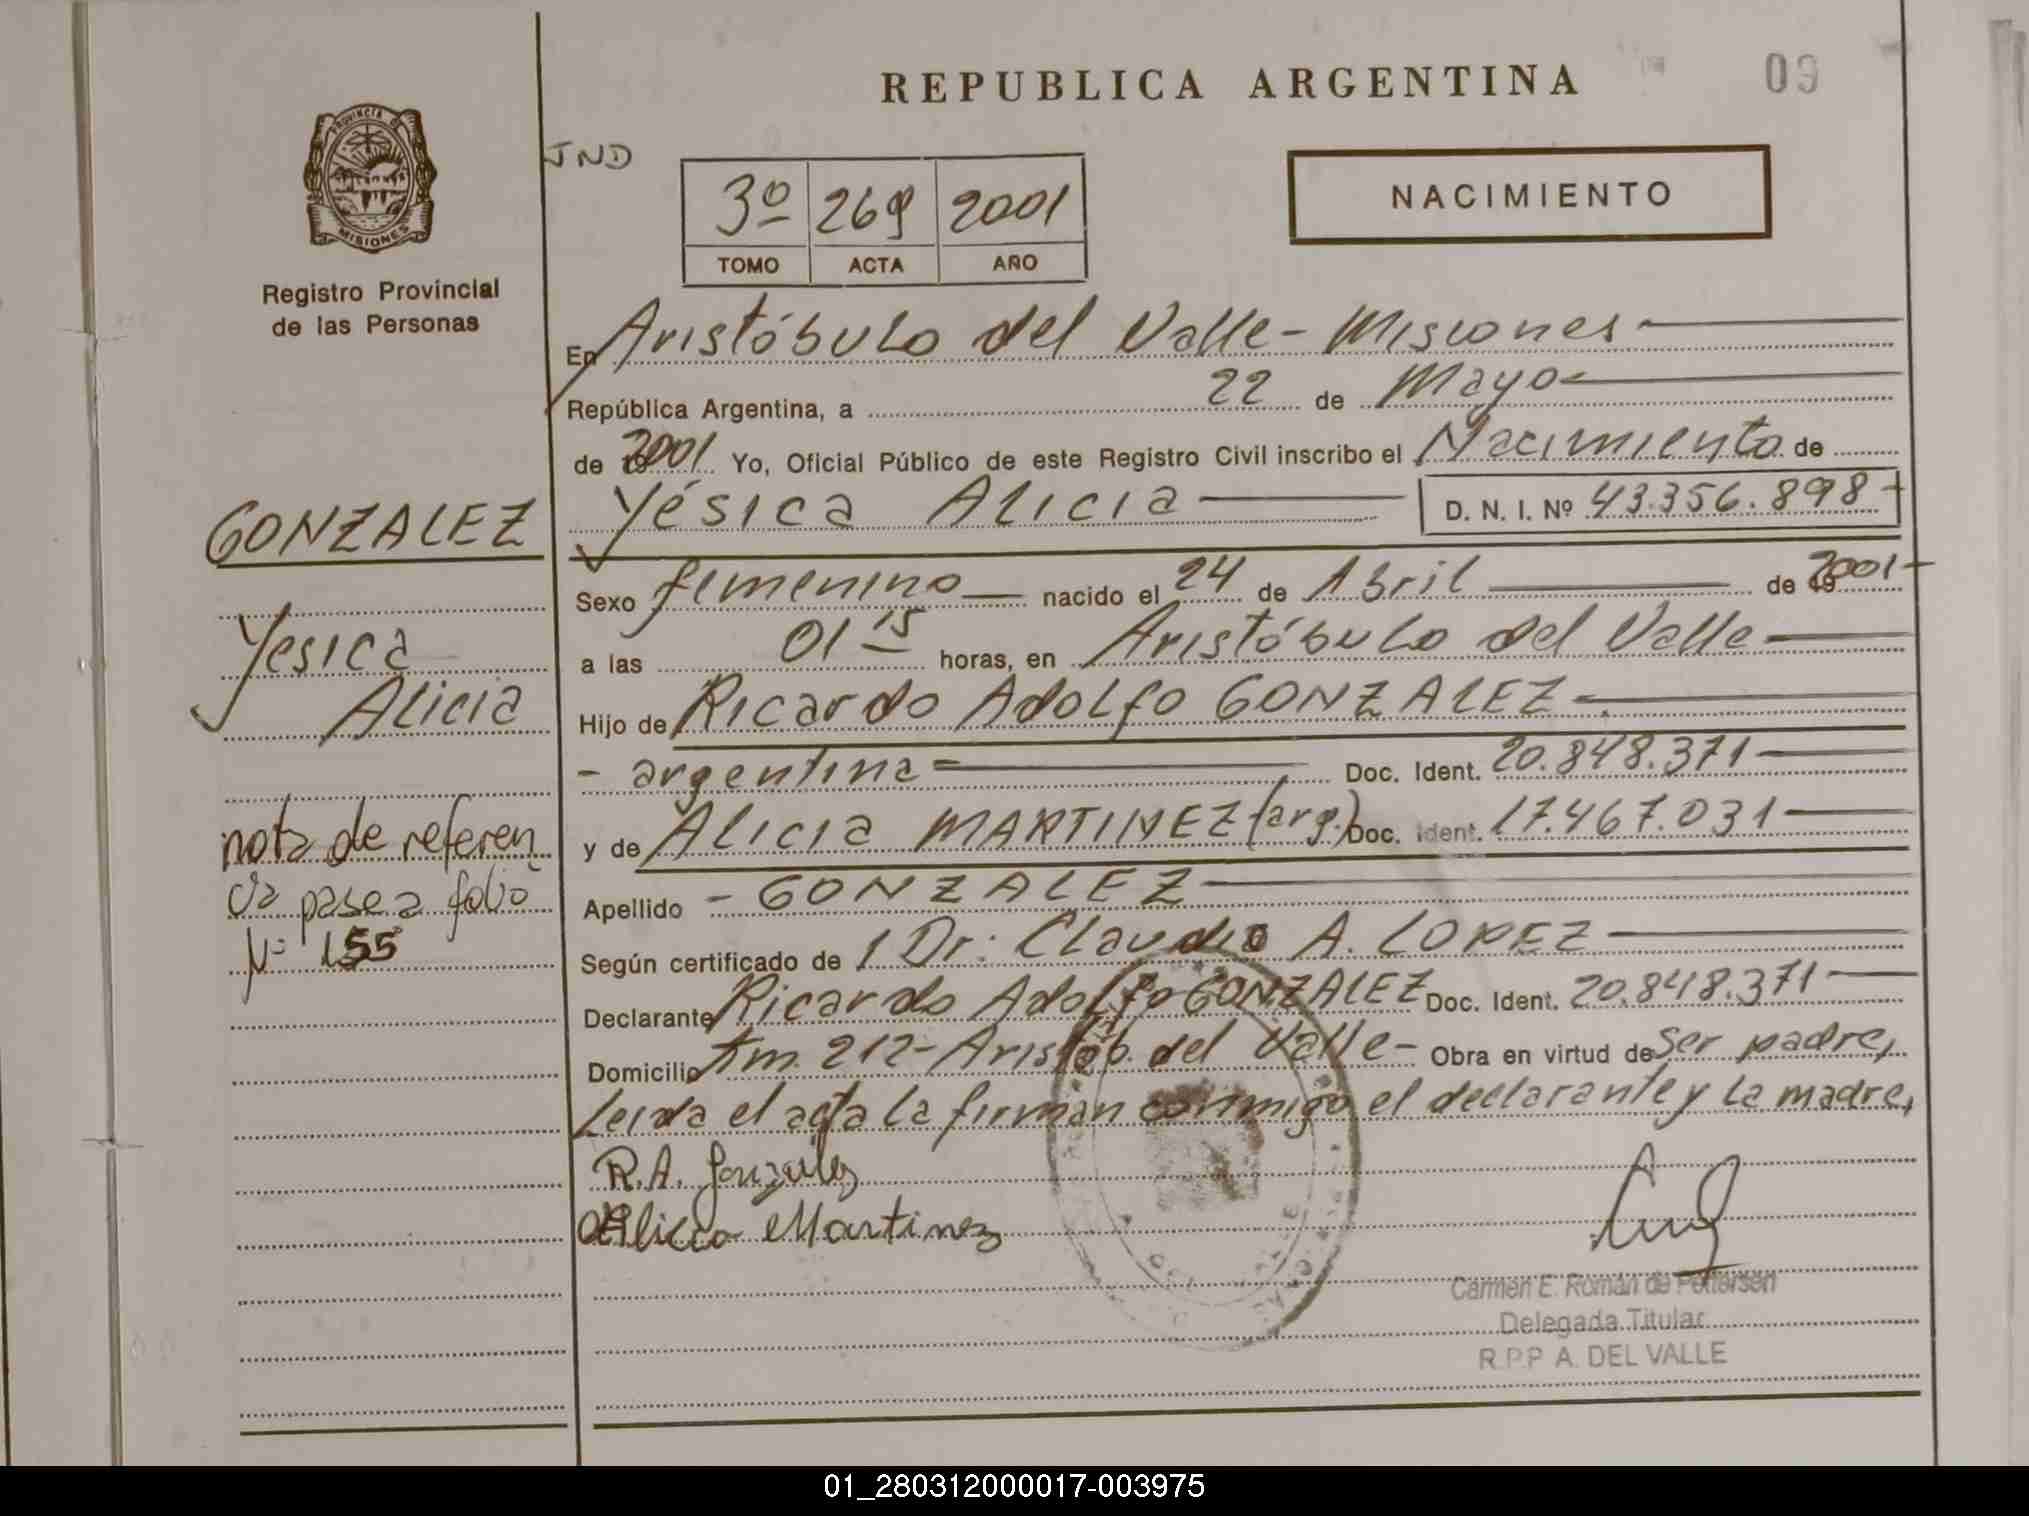 REPUBLICA ARGENTINA
09
PROVINCIA DE
MISIONES
Registro Provincial
de las Personas
JND
3º 269 2001
TOMO ACTA AÑO
NACIMIENTO
En Aristóbulo del Valle - Misiones
República Argentina, a 22 de Mayo
de 2001 Yo, Oficial Público de este Registro Civil inscribo el Nacimiento de
Yésica Alicia D. N. I. Nº 43.356.898
Sexo femenino nacido el 24 de Abril de 2001
a las 01 15 horas, en Aristóbulo del Valle
Hijo de Ricardo Adolfo GONZALEZ
- argentina - Doc. Ident. 20.848.371
y de Alicia MARTINEZ (arg.) Doc. Ident. 17.467.031
Apellido - GONZALEZ
Según certificado de Dr: Claudio A. LOPEZ
Declarante Ricardo Adolfo GONZALEZ Doc. Ident. 20.848.371
Domicilio Km. 212 - Aristób. del Valle - Obra en virtud de Ser padre,
Leida el acta la firman conmigo el declarante y la madre,
R.A. Gonzalez
Alicia Martinez
Carmen E. Román de Pettersen
Delegada Titular
R.P.P A. DEL VALLE
GONZALEZ
Yesica
Alicia
nota de referen
cia pase a folio
Nº 155
01_280312000017-003975